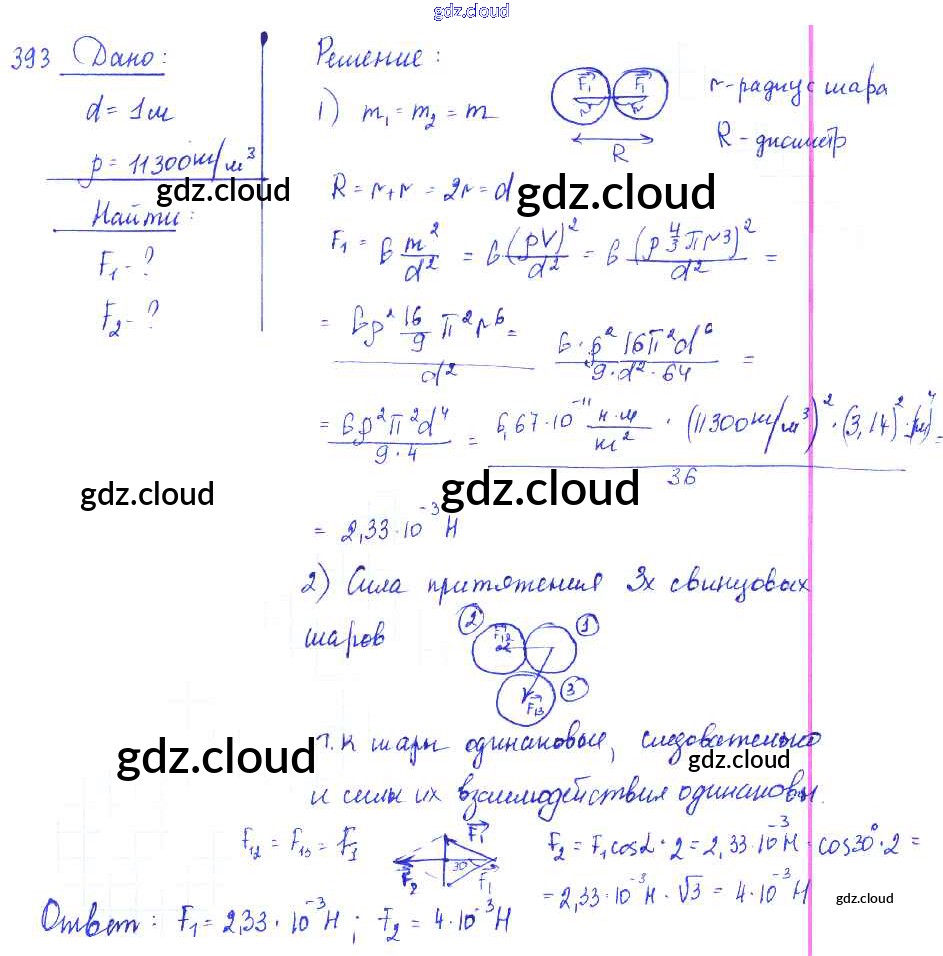 gdz.cloud
393 Дано:
d = 1м
ρ = 11300кг/м³
Найти:
F₁ - ?
F₂ - ?
Решение:
1) m₁ = m₂ = m
F₁ F₁
r r
R
r - радиус шара
R - диаметр
gdz.cloud gdz.cloud
R = r + r = 2r = d
F₁ = G m²/d² = G (ρV)²/d² = G (ρ 4/3 πr³)²/d² =
= Gρ² 16/9 π² r⁶ / d² = G · ρ² 16π²d⁶ / 9·d²·64 =
= Gρ²π²d⁴ / 9·4 = 6,67·10⁻¹¹ н·м/кг² · (11300кг/м³)² · (3,14)² · (1м)⁴ / 36 =
gdz.cloud gdz.cloud
= 2,33·10⁻³ Н
2) Сила притяжения 3х свинцовых
шаров
2 F₁₂ 1
3 F₁₃
т.к шары одинаковые, следовательно
gdz.cloud gdz.cloud
и силы их взаимодействия одинаковы.
F₁₂ = F₁₃ = F₁
F₁ 30° F₂ F₁
F₂ = F₁cosα·2 = 2,33·10⁻³Н · cos30°·2 =
= 2,33·10⁻³Н · √3 = 4·10⁻³Н
gdz.cloud
Ответ: F₁ = 2,33·10⁻³Н; F₂ = 4·10⁻³Н